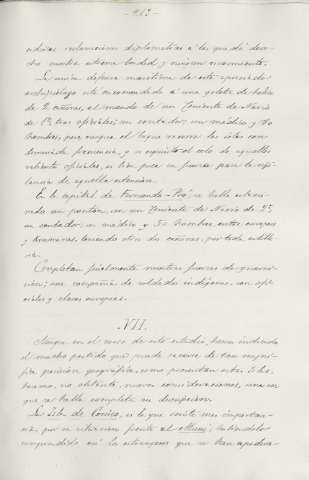 - 213 -
nuestra extrema bondad y ningun
La única defensa marítima de este apartado
archipiélago está encomendada á una goleta de hélice
de 2 cañones, al mando de un Teniente de Navio
de 1ª, tres oficiales, un contador, un médico y
hombres, pero aunque el buque recorre las islas con
frecuencia, y á el celo de aquellos
oficiales, es bien poca su fuerza para la vi-
gilancia de aquella estension.
En la capital de Fernando-Póo, se halla estacio-
nado un ponton, con un Teniente de Navio de 2ª,
un contador, un médico y 50 hombres, entre europeos
y krumanes, teniendo otros dos cañones, por toda artille-
ria.
Completan finalmente nuestras fuerzas de guarni-
cion, una compañia de soldados indígenas, con ofi-
ciales y clases europeas.
VII.
Aunque en el curso de este estudio, hemos indicado
el mucho partido que puede sacarse de tan magní-
fica posicion geográfica, como presentan estas islas,
haremos, no obstante, nuevas consideraciones, una vez
que se halla completa su descripcion.
La Isla de Corisco, es la que cuenta mas importan-
cia, por su situacion frente al Muni; habiéndolo
comprendido así los estrangeros que se han apodera-